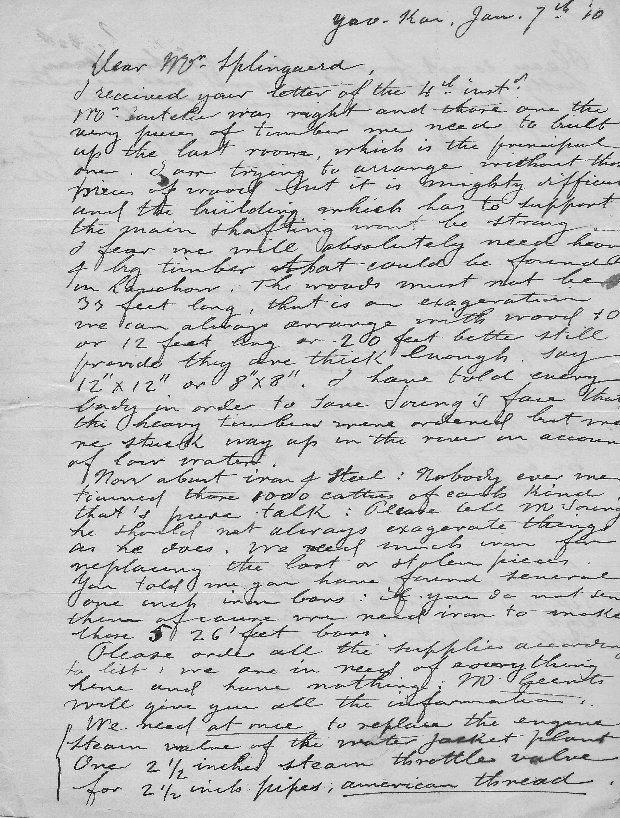 Yao-Kai, Jan. 7th 10
Dear Mr. Splingaerd,
I received your letter of the 4th inst.
Mr. was right and those are the
very pieces of timber we need to built
up the last room, which is the principal
one. I am trying to arrange without those
pieces of wood but it is mighty difficul
and the building which has to support
the main shafting wont be strong.
I fear we will absolutely need heav
& big timber that could be found
in Lanchow. The woods must not be
33 feet long, that is an exageration
we can always arrange with wood 10
or 12 feet long or 20 feet better still
provide they are thick enough. say
12" x 12" or 8" x 8". I have told every
body in order to save Young's face that
the heavy timbers were ordered but we
re stuck way up in the river on accoun
of low water.
Now about iron & steel: Nobody ever me
tionned those 1000 catties of each kind,
that's pure talk: Please tell Mr Young
he should not always exagerate things
as he does. We need much iron for
replacing the lost or stolen pieces.
You told me you have found several
one inch iron bars: if you do not sen
them of course we need iron to make
those 5 26' feet bars.
Please order all the supplies according
to list: we are in need of everything
here and have nothing: Mr Geerts
will give you all the information.
We need at once to replace the engine
steam valve of the water jacket plant
One 2 1/2 inches steam throttle valve
for 2 1/2 inch pipes, american thread.